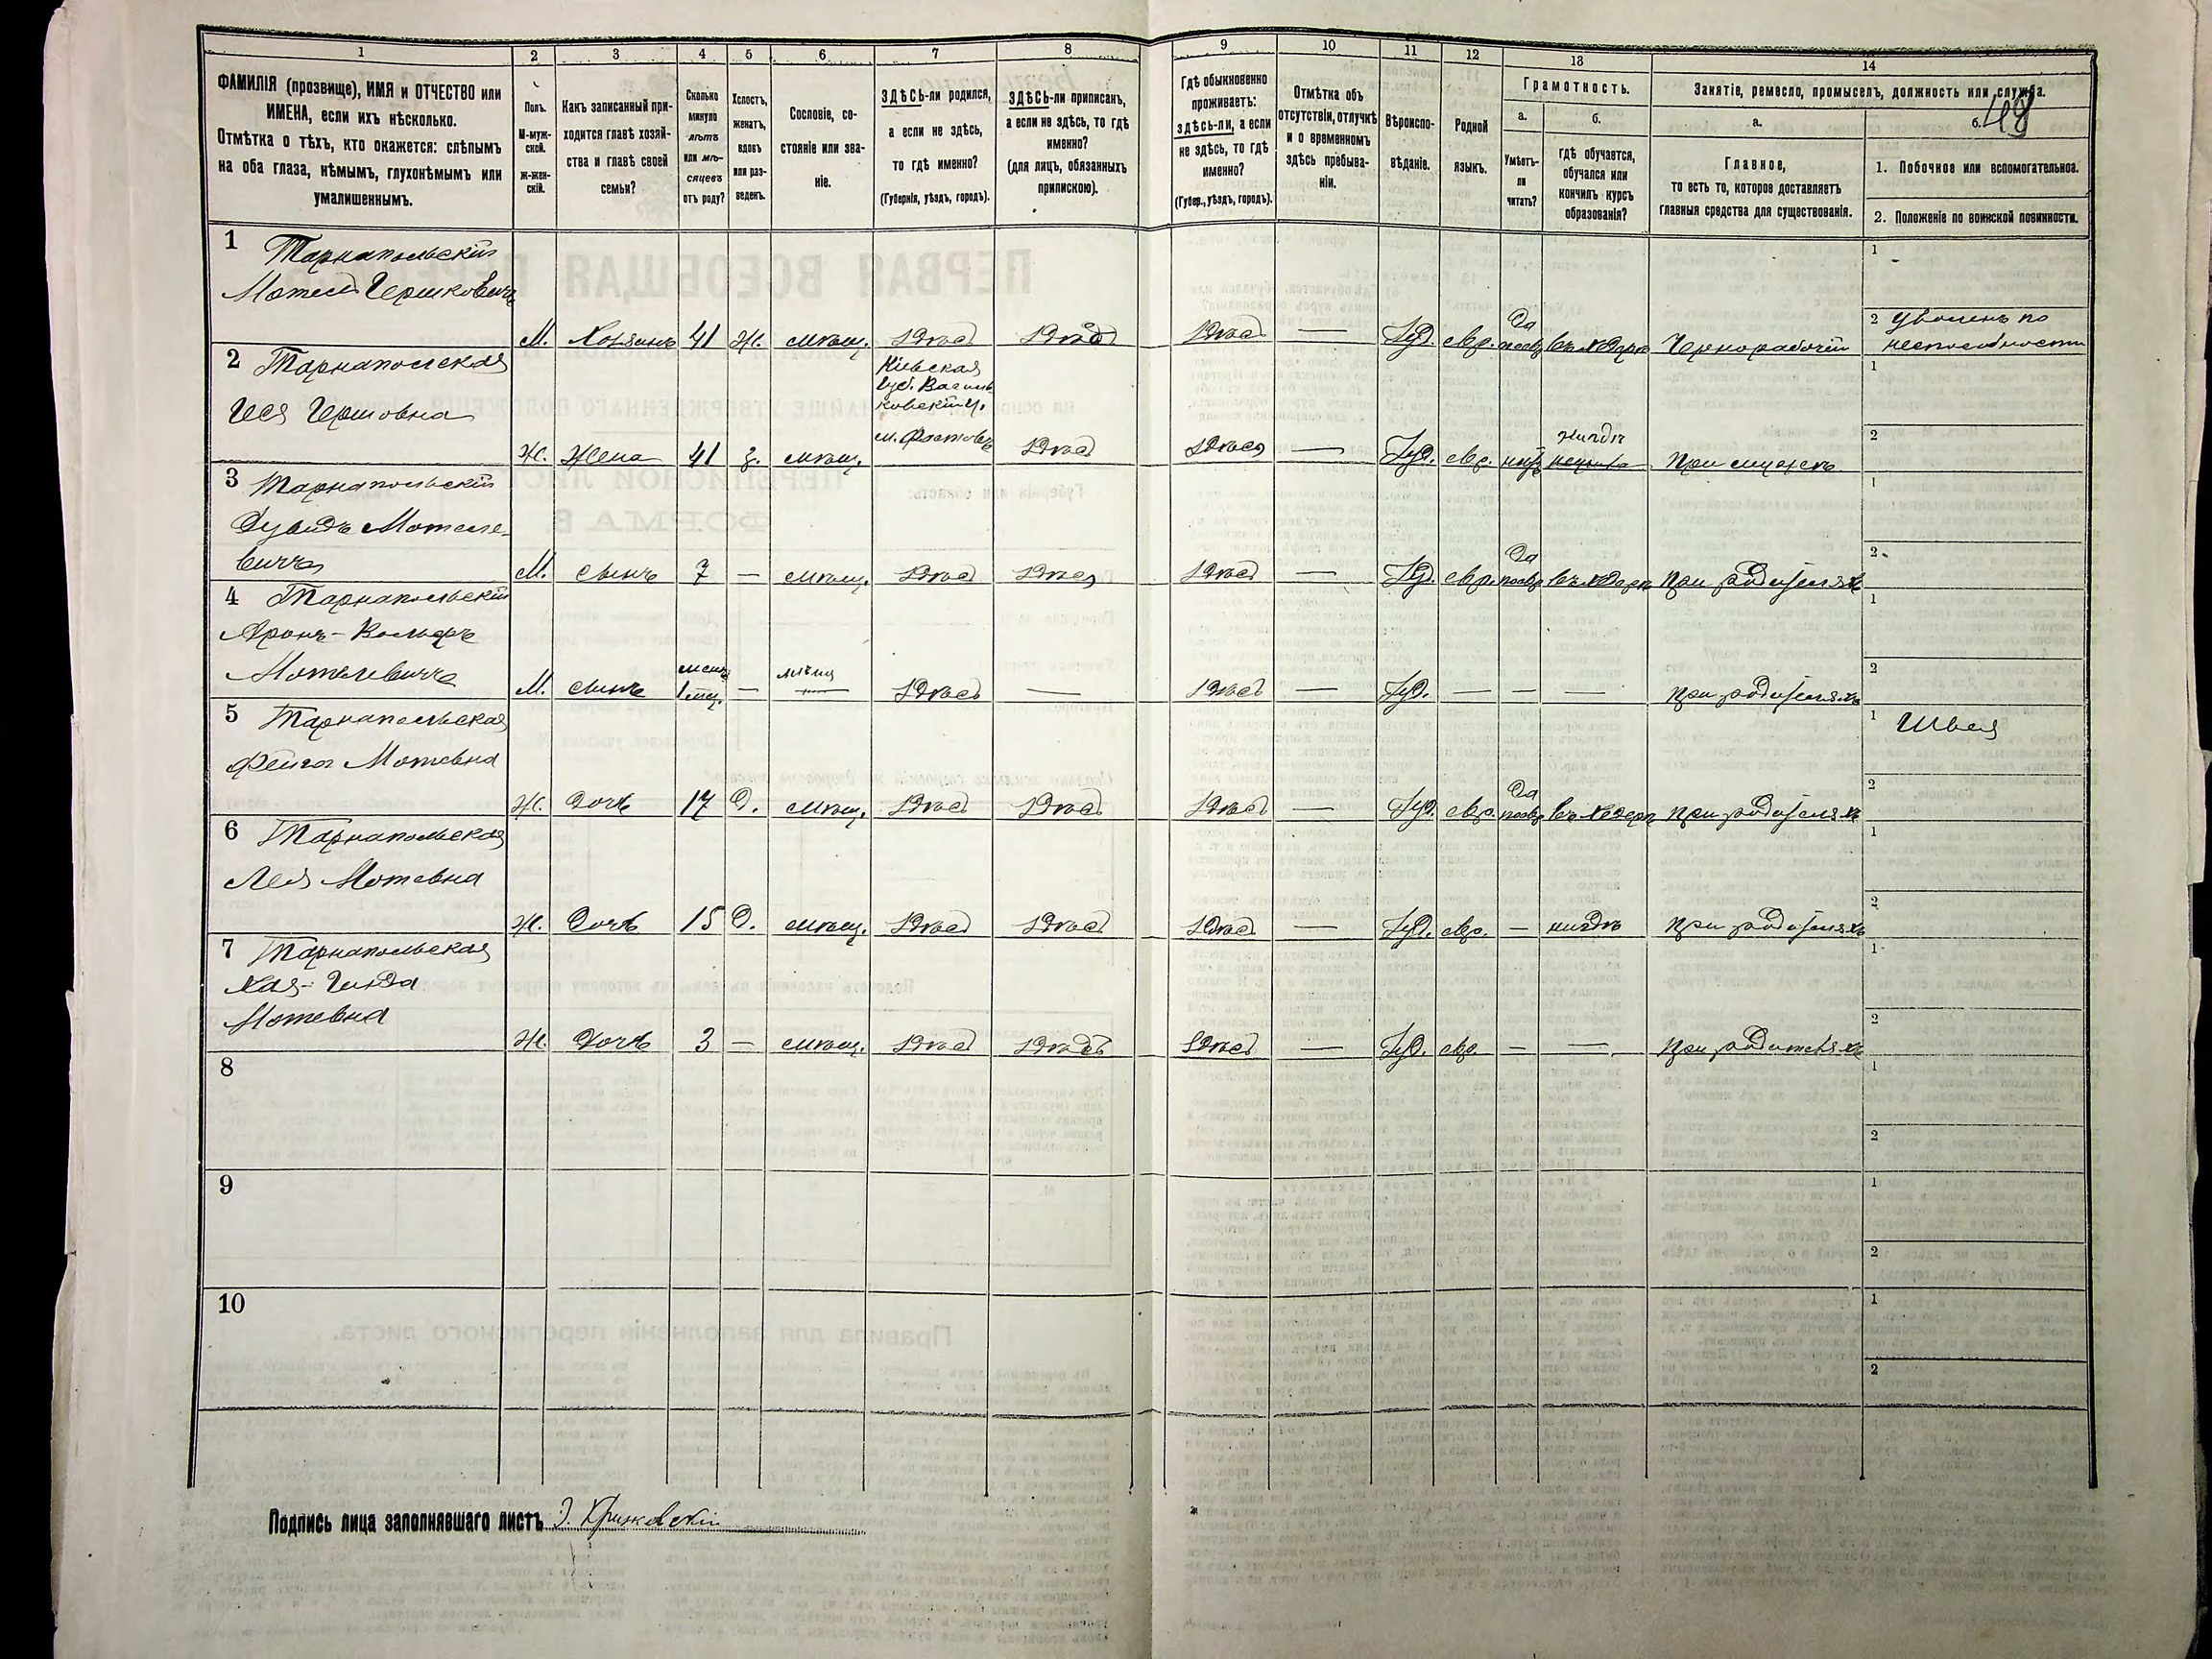 1 2 3 4 5 6 7 8 9 10 11 12 13 14
ФАМИЛІЯ (прозвище), ИМЯ и ОТЧЕСТВО или
ИМЕНА, если ихъ нѣсколько.
Отмѣтка о тѣхъ, кто окажется: слѣпымъ
на оба глаза, нѣмымъ, глухонѣмымъ или
умалишеннымъ.
Полъ.
М-муж-
ской.
ж-жен-
скій.
Какъ записанный при-
ходится главѣ хозяй-
ства и главѣ своей
семьи?
Сколько
минуло
лѣтъ
или мѣ-
сяцевъ
отъ роду?
Холостъ,
женатъ,
вдовъ
или раз-
веденъ.
Сословіе, со-
стояніе или зва-
ніе.
ЗДѢСЬ-ли родился,
а если не здѣсь,
то гдѣ именно?
(Губернія, уѣздъ, городъ).
ЗДѢСЬ-ли приписанъ,
а если не здѣсь, то гдѣ
именно?
(для лицъ, обязанныхъ
припискою).
Гдѣ обыкновенно
проживаетъ:
здѣсь-ли, а если
не здѣсь, то гдѣ
именно?
(Губер., уѣздъ, городъ).
Отмѣтка объ
отсутствіи, отлучкѣ
и о временномъ
здѣсь пребыва-
ніи.
Вѣроиспо-
вѣданіе.
Родной
языкъ.
Грамотность.
а.
Умѣетъ-
ли
читать?
б.
гдѣ обучается,
обучался или
кончилъ курсъ
образованія?
Занятіе, ремесло, промыселъ, должность или служба.
а.
Главное,
то есть то, которое доставляетъ
главныя средства для существованія.
б.
1. Побочное или вспомогательное.
2. Положеніе по воинской повинности.
1 Тарнапольскій
Мотель Гершковичъ
М. Хозяинъ 41 Ж. мѣщ. Здѣсь Здѣсь Здѣсь — Іуд. евр. Да въ хедерѣ Чернорабочій
1
2 Уволенъ по
неспособности
2 Тарнапольская
Гершовна
Кіевская
Губ. Василь
ковскій у.
м. Фастовъ
Ж. Жена 41 З. мѣщ. Здѣсь Здѣсь — Іуд. евр. нигдѣ
1
2
3 Тарнапольскій
Дувидъ Мотеле-
вичъ
М. сынъ 7 — мѣщ. Здѣсь Здѣсь Здѣсь — Іуд. евр. Да въ хедерѣ при родителяхъ
1
2
4 Тарнапольскій
Аронъ-Вольфъ
Мотелевичъ
М. сынъ — Здѣсь — Здѣсь — Іуд. — — — при родителяхъ
1
2
5 Тарнапольская
Фейга Мотевна
Ж. Дочь 17 Д. мѣщ. Здѣсь Здѣсь Здѣсь — Іуд. евр. Да въ хедерѣ при родителяхъ
1 Швея
2
6 Тарнапольская
Лея Мотевна
Ж. Дочь 15 Д. мѣщ. Здѣсь Здѣсь Здѣсь — Іуд. евр. — нигдѣ при родителяхъ
1
2
7 Тарнапольская
Хая-
Мотевна
Ж. Дочь 3 — мѣщ. Здѣсь Здѣсь Здѣсь — Іуд. евр. — — при родителяхъ
1
2
8
1
2
9
1
2
10
1
2
Подпись лица заполнявшаго листъ